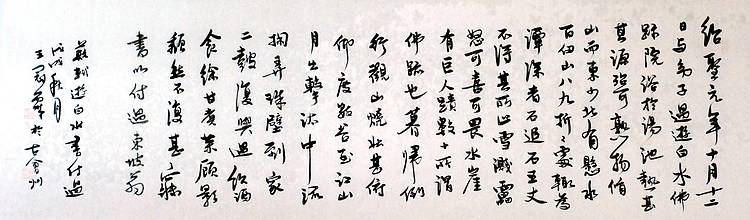 紹聖元年十月十二
日与幼子過遊白水佛
跡院浴於湯池熱甚
其源殆可熟物循
山而東少北有懸水
百仞山八九折折處輒為
潭深者磓石五丈
不得其所止雪濺雷
怒可喜可畏水崖
有巨人蹟數十所謂
佛跡也暮歸倒
行觀山燒壯甚俯
仰度數谷至江山
月出擊汰中流
掬弄珠璧到家
二鼓復與過飲酒
食餘甘煮菜顧影
頹然不復甚寐
書以付過東坡翁
蘇軾遊白水書付過
戊戌秋月
王 於古會州